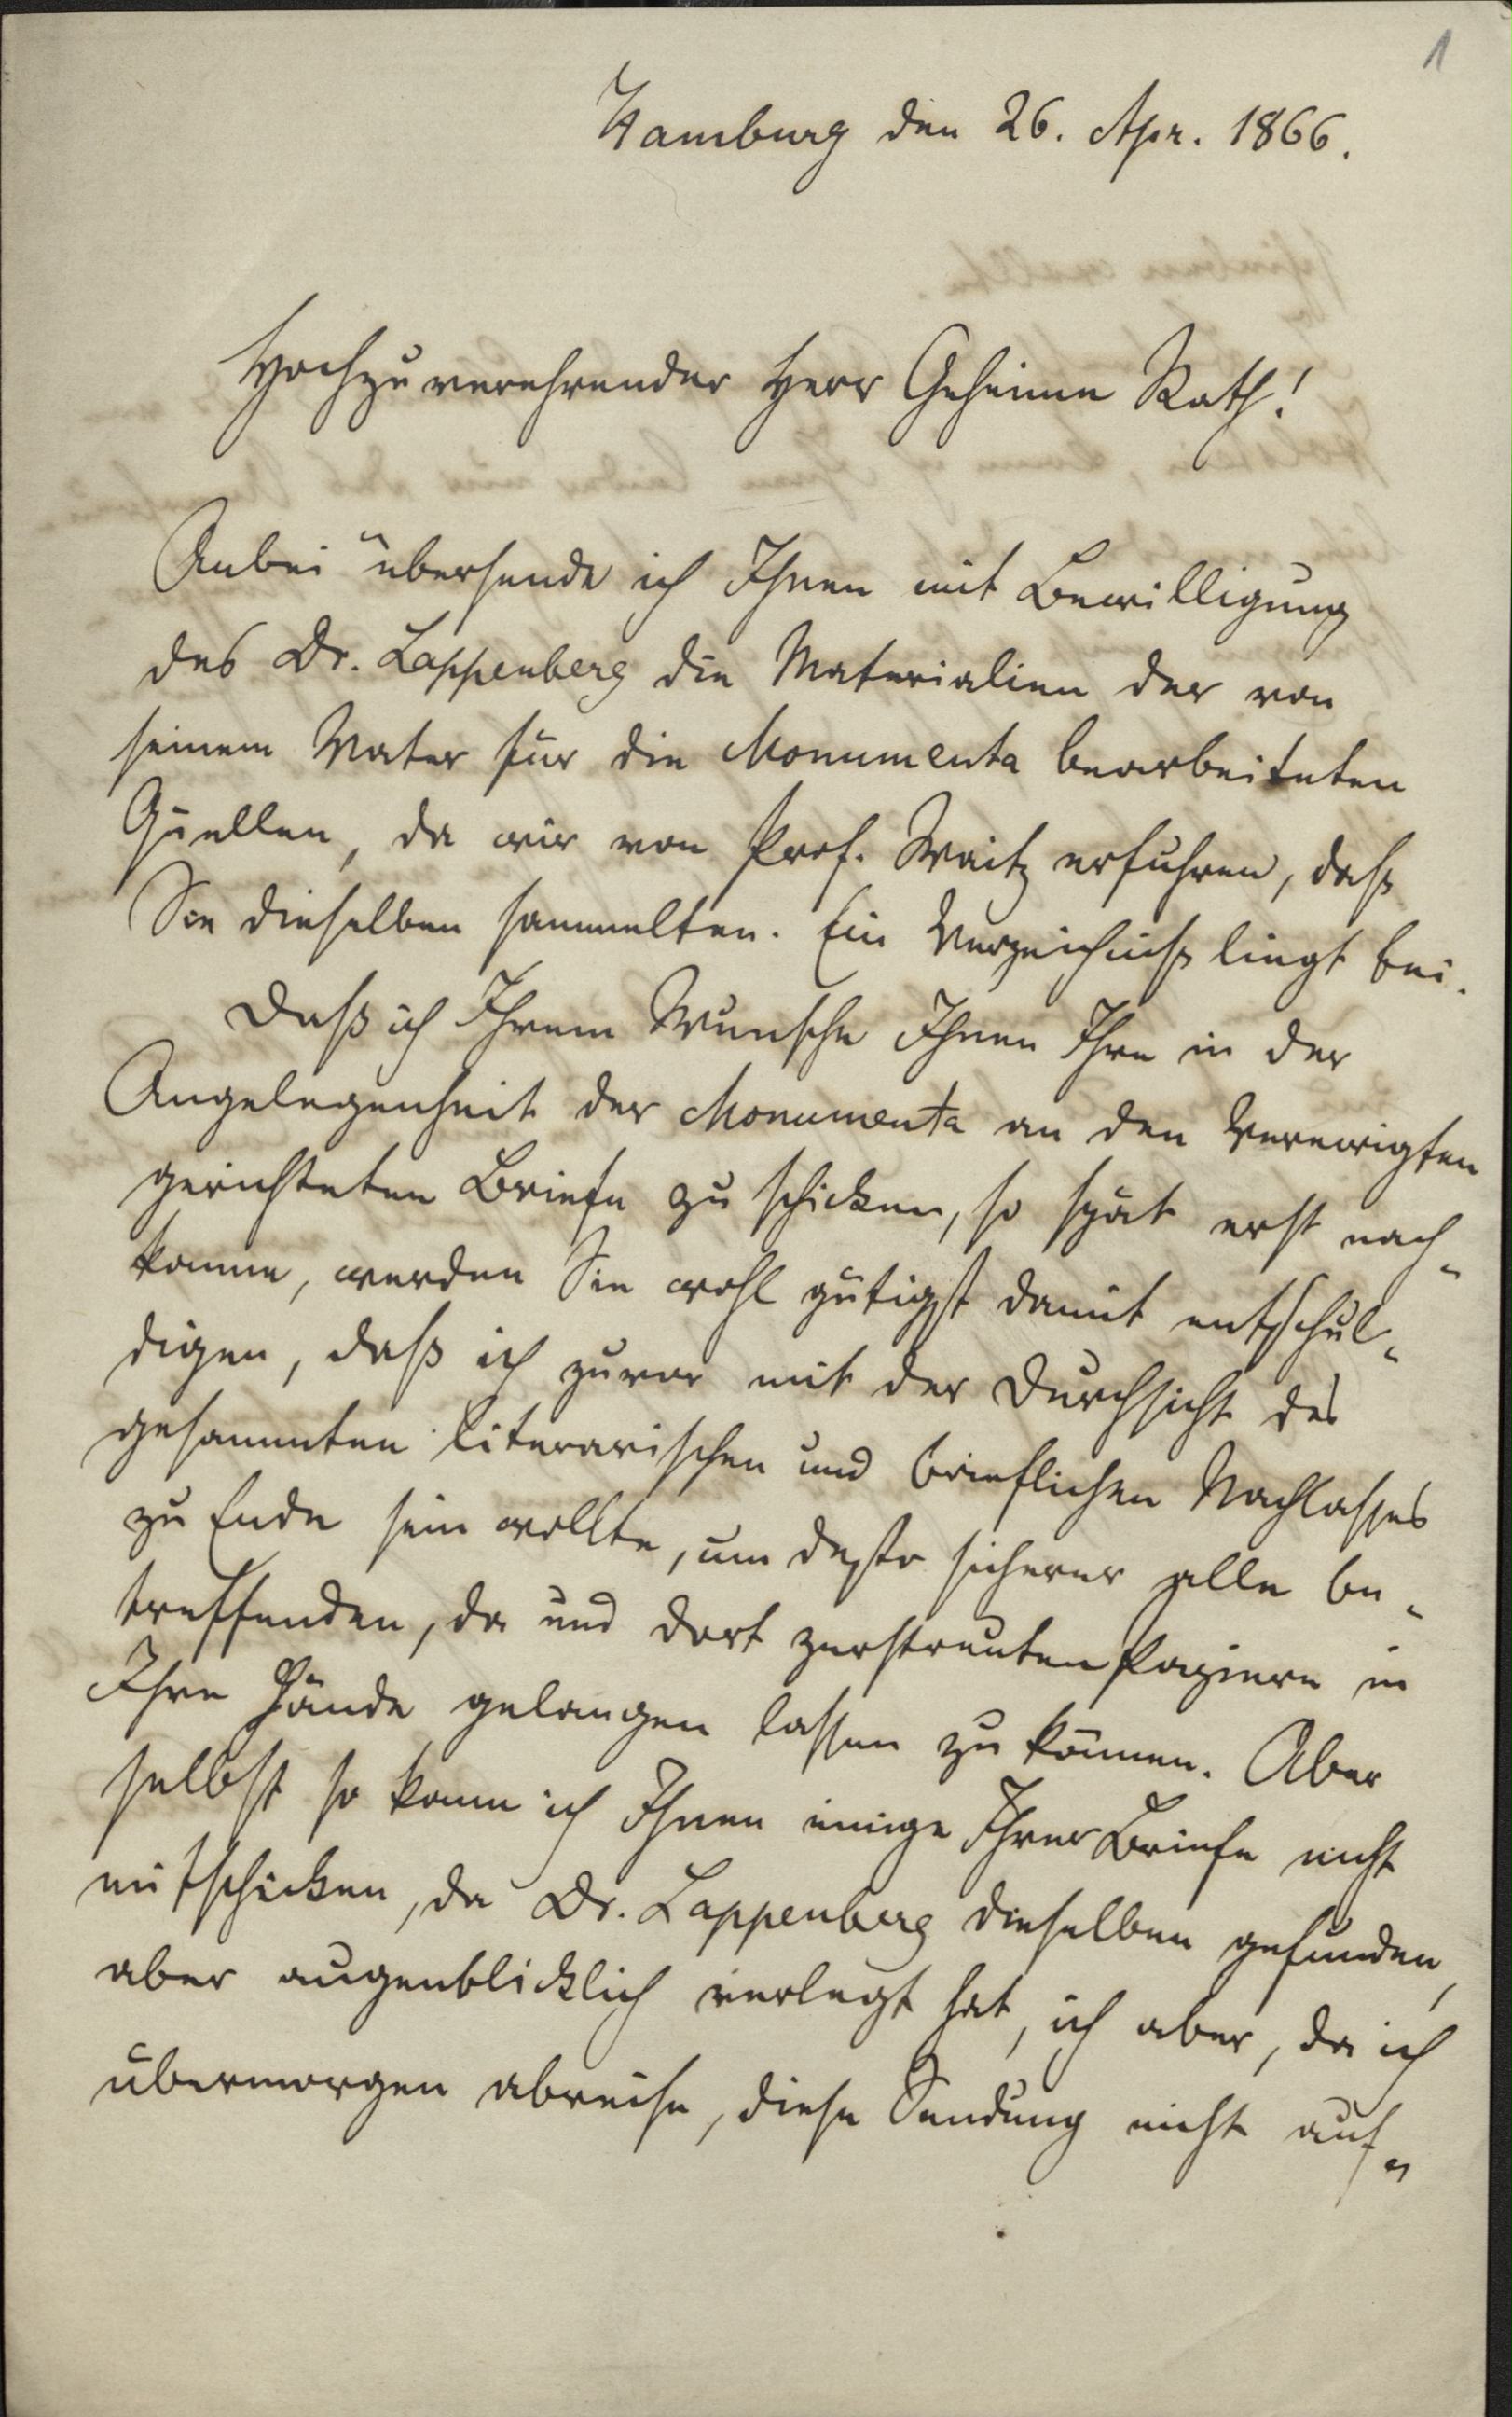 1
Hamburg den 26. Apr. 1866.
Hochzuverehrender Herr Geheime Rath!
Anbei übersende ich Ihnen mit Bewilligung
des Dr. Lappenberg die Materialien der von
seinem Vater für die Monumenta bearbeiteten
Quellen, da wir von Prof. Waitz erfuhren, daß
Sie dieselben sammelten. Ein Verzeichniß liegt bei.
Daß ich Ihrem Wunsche Ihnen Ihre in der
Angelegenheit der Monumenta an den Verewigten
gerichteten Briefe zu schicken, so spät erst nach-
komme, werden Sie wohl gütigst damit entschul-
digen, daß ich zuvor mit der Durchsicht des
gesammten literarischen und brieflichen Nachlasses
zu Ende sein wollte, um desto sicherer alle be-
treffenden, da und dort zerstreuten Papiere in
Ihre Hände gelangen lassen zu können. Aber
selbst so kann ich Ihnen einige Ihrer Briefe nicht
mitschicken, da Dr. Lappenberg dieselben gefunden,
aber augenblicklich verlegt hat, ich aber, da ich
übermorgen abreise, diese Sendung nicht auf-